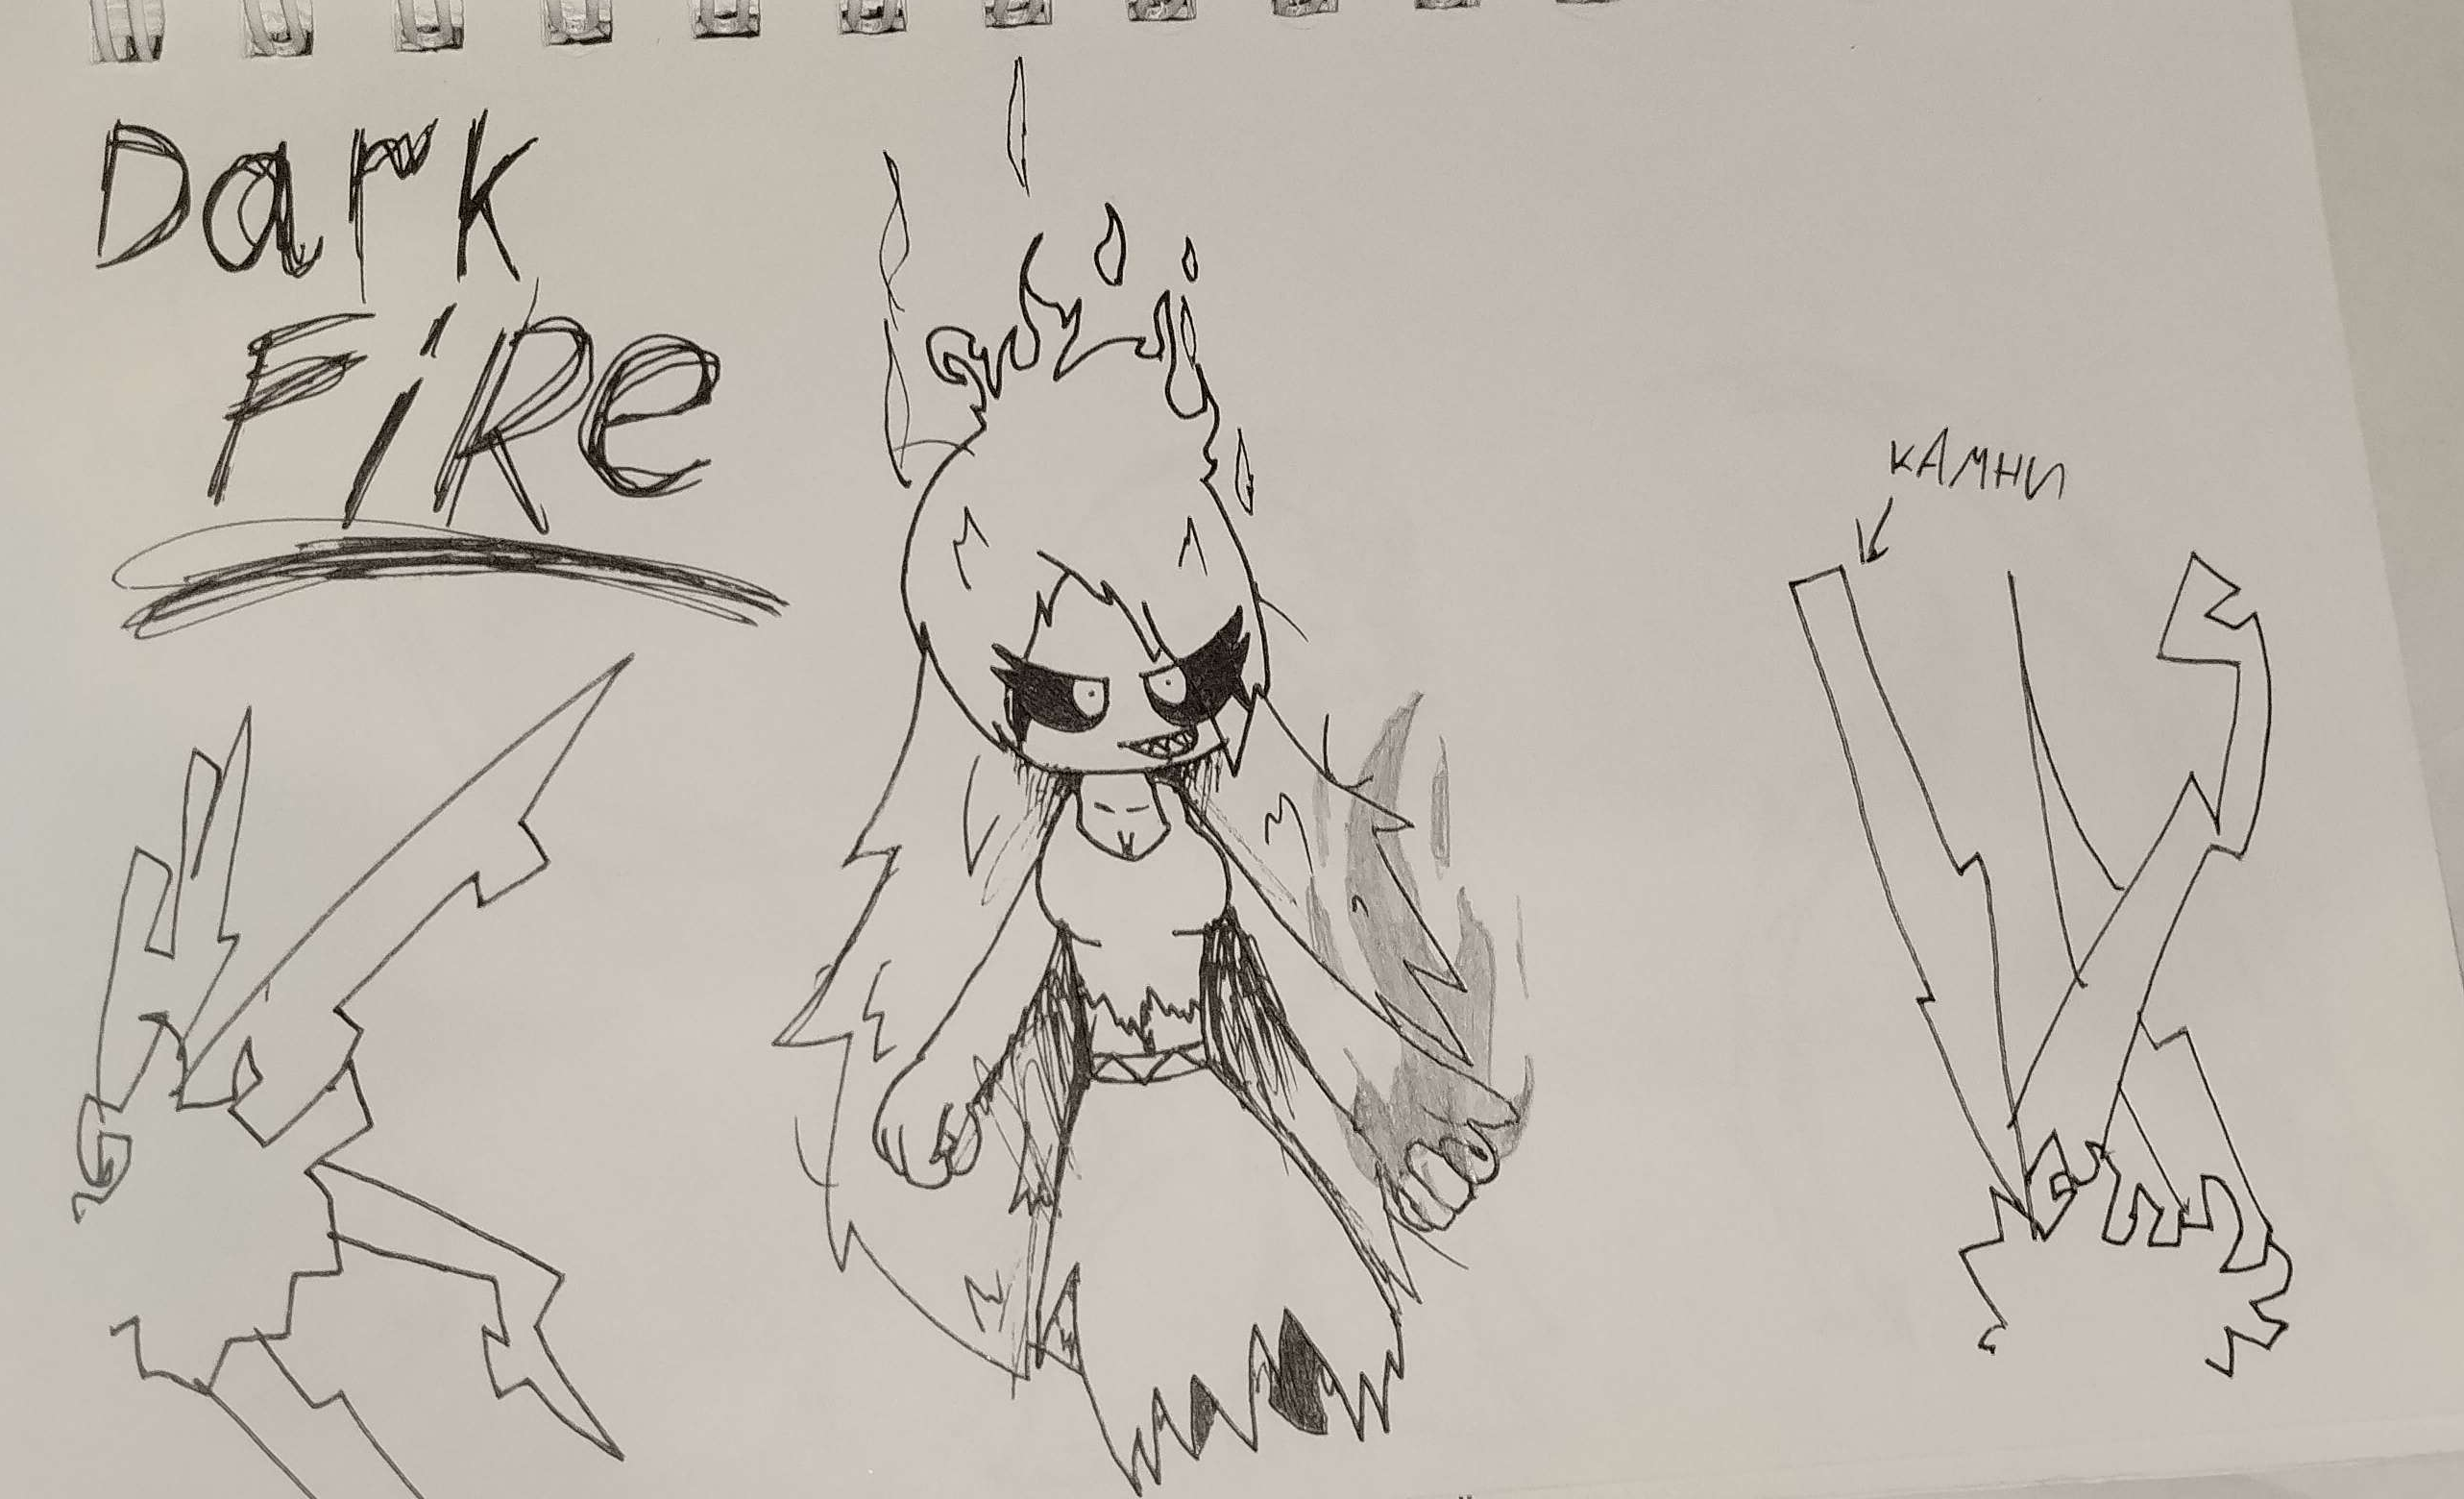 Dark
FiRe
КАМНИ